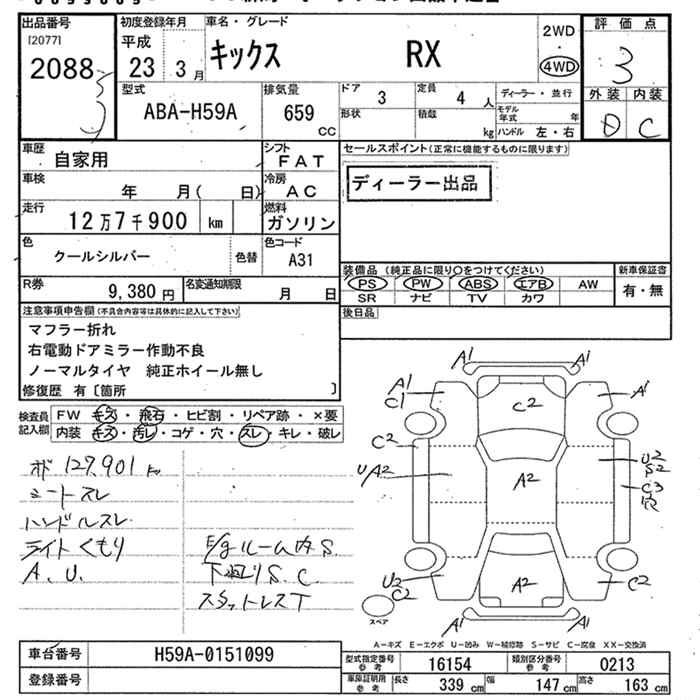 出品番号
[2077]
2088
初度登録年月
平成
23 3月
車名・グレード
キックス RX
2WD
4WD
評価点
3
外装 内装
D C
型式
ABA-H59A
排気量
659 CC
ドア 3
定員 4 人
形状
積載 kg
ディーラー・並行
モデル年式 年
ハンドル 左・右
車歴
自家用
シフト
FAT
車検
年 月( 日)
冷房
AC
走行
12万7千900 km
燃料
ガソリン
色
クールシルバー
色替
色コード
A31
R券
9,380 円
名変通知期限
月 日
セールスポイント(正常に機能するものに限ります)
ディーラー出品
装備品 (純正品に限り○をつけてください)
新車保証書
PS PW ABS エアB AW
有・無
SR ナビ TV カワ
後日品
注意事項申告欄(不具合内容等は具体的に記入して下さい)
マフラー折れ
右電動ドアミラー作動不良
ノーマルタイヤ 純正ホイール無し
修復歴 有〔箇所 〕
検査員記入欄
FW キズ・飛石・ヒビ割・リペア跡・×要
内装 キズ・汚レ・コゲ・穴・スレ・キレ・破レ
オド 127,901 km
シートスレ
ハンドルスレ
ライトくもり
A.U.
E/gルーム内S.
下廻りS.C.
スタットレスT
A1 A1
A1
C1
C2
A1
C2
UA2
A2
U2
S2
C3
U2
C2
A2
C2
A1 A1
スペア
A-キズ E-エクボ U-凹み W-補修跡 S-サビ C-腐食 XX-交換済
車台番号
H59A-0151099
登録番号
型式指定番号参考
16154
類別区分番号参考
0213
車庫証明用参考
長さ 339 cm
幅 147 cm
高さ 163 cm